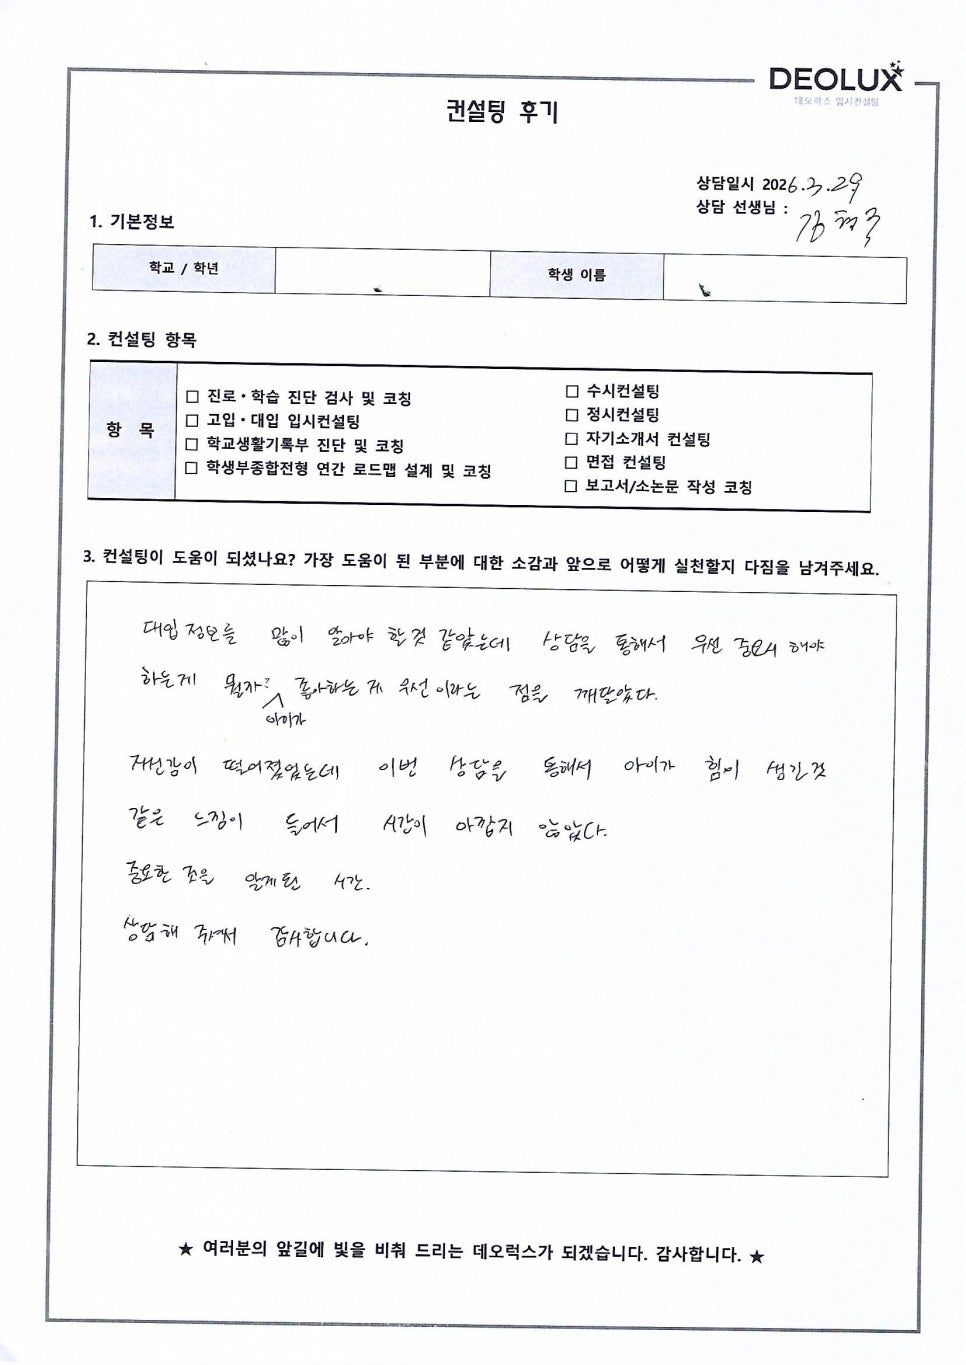 DEOLUX
데오럭스 입시컨설팅
컨설팅 후기
상담일시 2026.3.29
상담 선생님 :
1. 기본정보
학교 / 학년 학생 이름
2. 컨설팅 항목
항 목
□ 진로·학습 진단 검사 및 코칭
□ 고입·대입 입시컨설팅
□ 학교생활기록부 진단 및 코칭
□ 학생부종합전형 연간 로드맵 설계 및 코칭
□ 수시컨설팅
□ 정시컨설팅
□ 자기소개서 컨설팅
□ 면접 컨설팅
□ 보고서/소논문 작성 코칭
3. 컨설팅이 도움이 되셨나요? 가장 도움이 된 부분에 대한 소감과 앞으로 어떻게 실천할지 다짐을 남겨주세요.
대입 정보를 많이 알아야 할것 같았는데 상담을 통해서 우선 중요시 해야
하는게 뭘까? 아이가 좋아하는 게 우선이라는 점을 깨달았다.
자신감이 떨어졌었는데 이번 상담을 통해서 아이가 힘이 생긴것
같은 느낌이 들어서 시간이 아깝지 않았다.
중요한 것을 알게된 시간.
상담해 주셔서 감사합니다.
★ 여러분의 앞길에 빛을 비춰 드리는 데오럭스가 되겠습니다. 감사합니다. ★